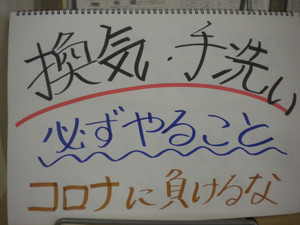 換気・手洗い
必ずやること
コロナに負けるな